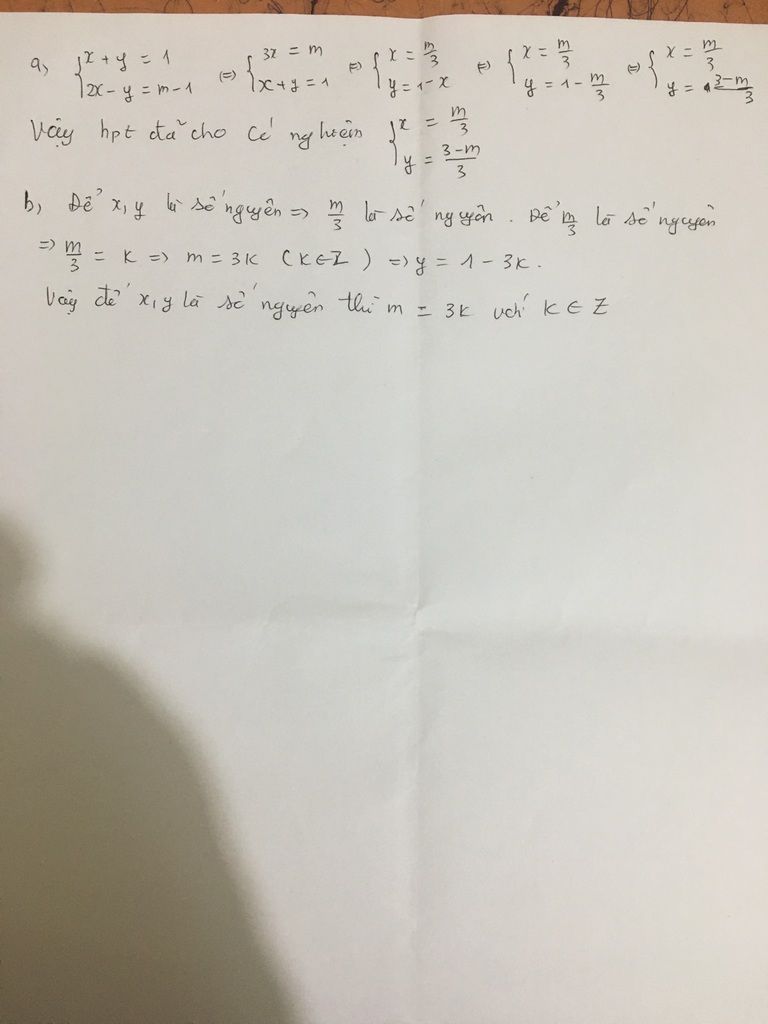 a, { x + y = 1 2x - y = m - 1 <=> { 3x = m x + y = 1 <=> { x = m/3 y = 1 - x <=> { x = m/3 y = 1 - m/3 <=> { x = m/3 y = 3-m/3
Vậy hpt đã cho có nghiệm { x = m/3 y = 3-m/3
b, Để x, y là số nguyên => m/3 là số nguyên. Để m/3 là số nguyên
=> m/3 = K => m = 3K (K ∈ Z) => y = 1 - 3K.
Vậy để x, y là số nguyên thì m = 3K với K ∈ Z